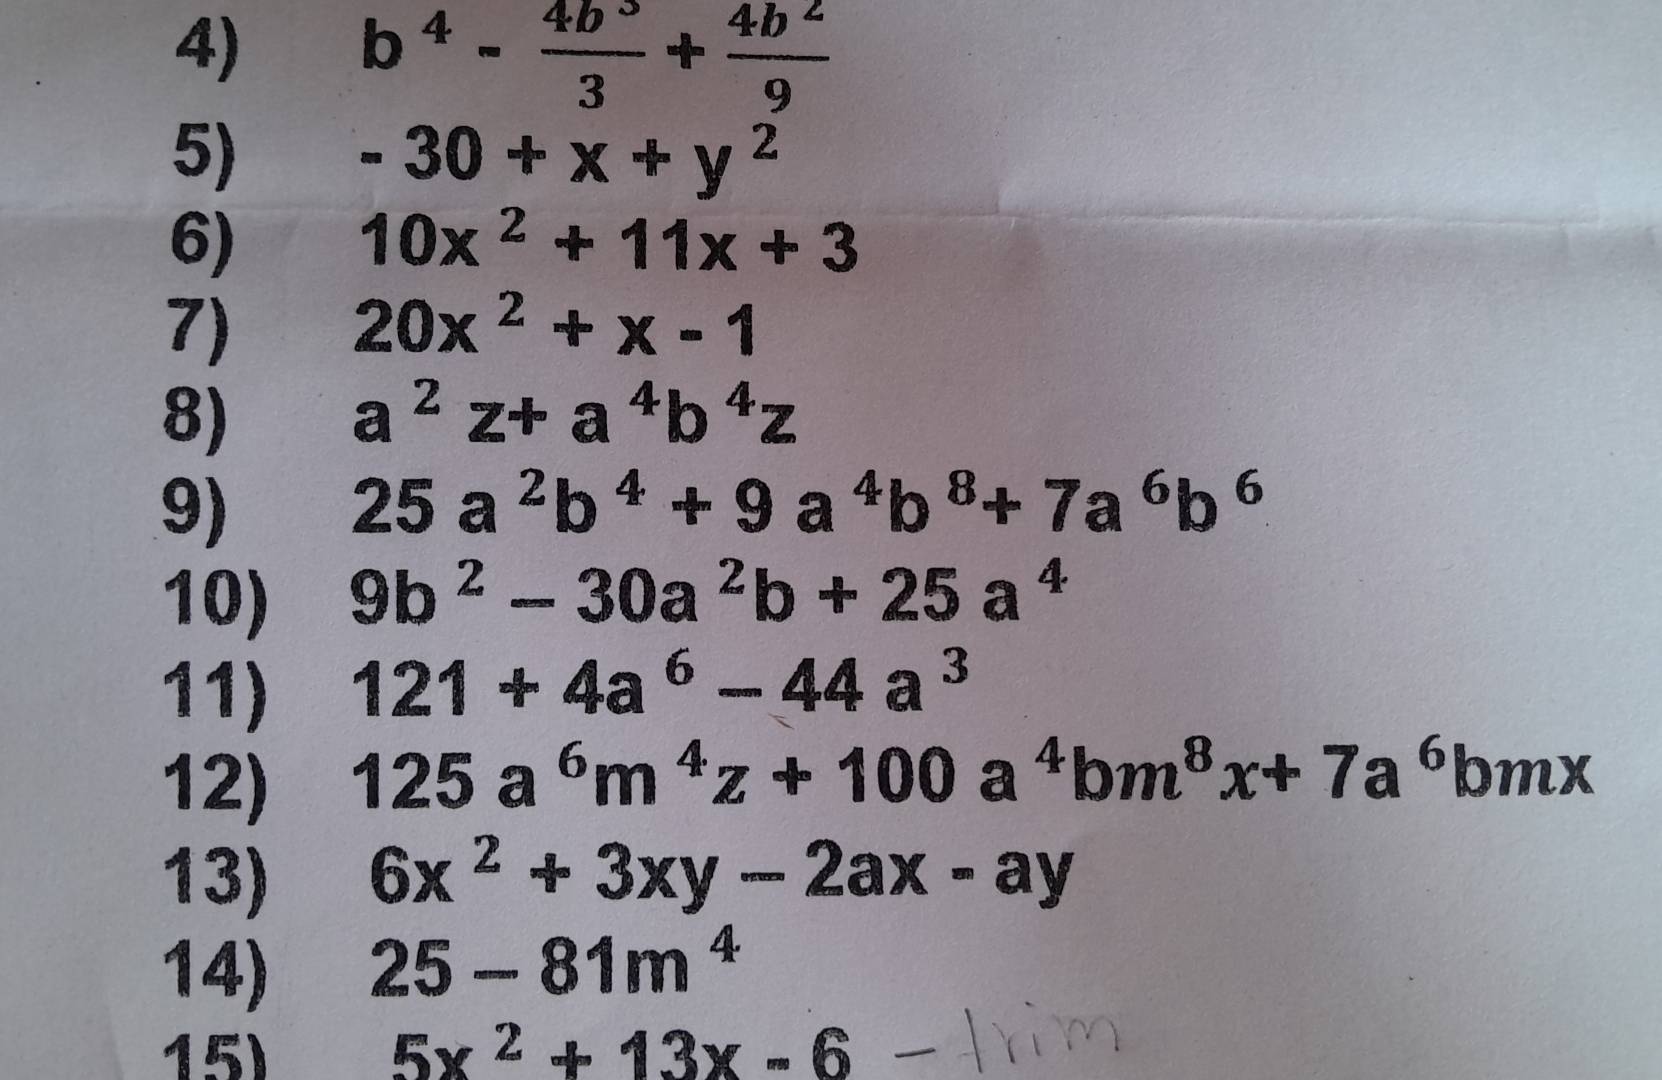 4) b⁴ - 4b³/3 + 4b²/9
5) - 30 + x + y²
6) 10x² + 11x + 3
7) 20x² + x - 1
8) a² z+ a⁴b⁴z
9) 25 a²b⁴ + 9 a⁴b⁸+ 7a⁶b⁶
10) 9b² – 30a²b + 25 a⁴
11) 121 + 4a⁶ – 44 a³
12) 125 a⁶m⁴z + 100 a⁴bm⁸x+ 7a⁶bmx
13) 6x² + 3xy – 2ax - ay
14) 25 – 81m⁴
15) 5x² + 13x - 6 – trim